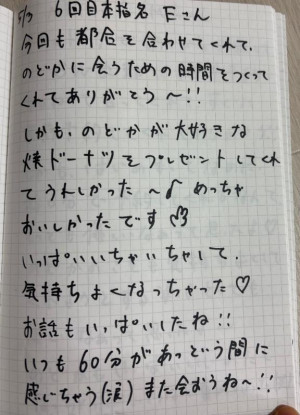 5/7 6回目本指名 Eさん
今回も都合を合わせてくれて、
のどかに会うための時間をつくって
くれてありがとう〜!!
しかも、のどかが大好きな
焼ドーナツをプレゼントしてくれ
てうれしかった〜♪ めっちゃ
おいしかったです
いっぱいいちゃいちゃして、
気持ちよくなっちゃった♡
お話もいっぱいしたね!!
いつも60分があっという間に
感じちゃう(涙) また会おうね〜!!